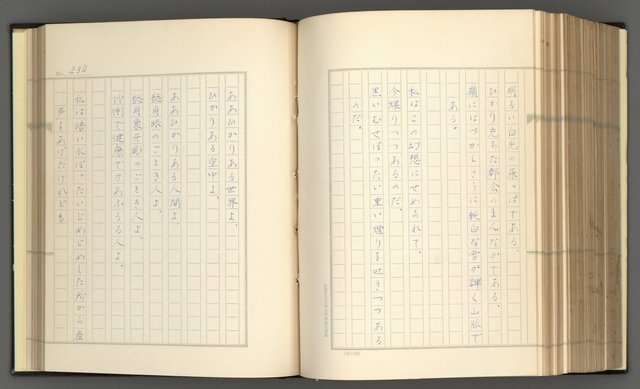 明るい白光の原っぱである、
ひかり充ちた都会のまんなかである、
嶺にはづかしさうに純白な雪が輝く山脈で
ある。
私はこの幻想にせめられて、
今爆りつつあるのだ、
黒いむせぼったい重い烟りを吐きつつある
のだ。
No. 230
ああひかりある世界よ、
ひかりある空中よ、
ああひかりある人間よ、
総身眼のごとき人よ、
総身象牙彫のごとき人よ、
怜悧で健康で力あふるる人よ、
私は暗い水ぼったいじめじめした所から産
声をあげたけれども